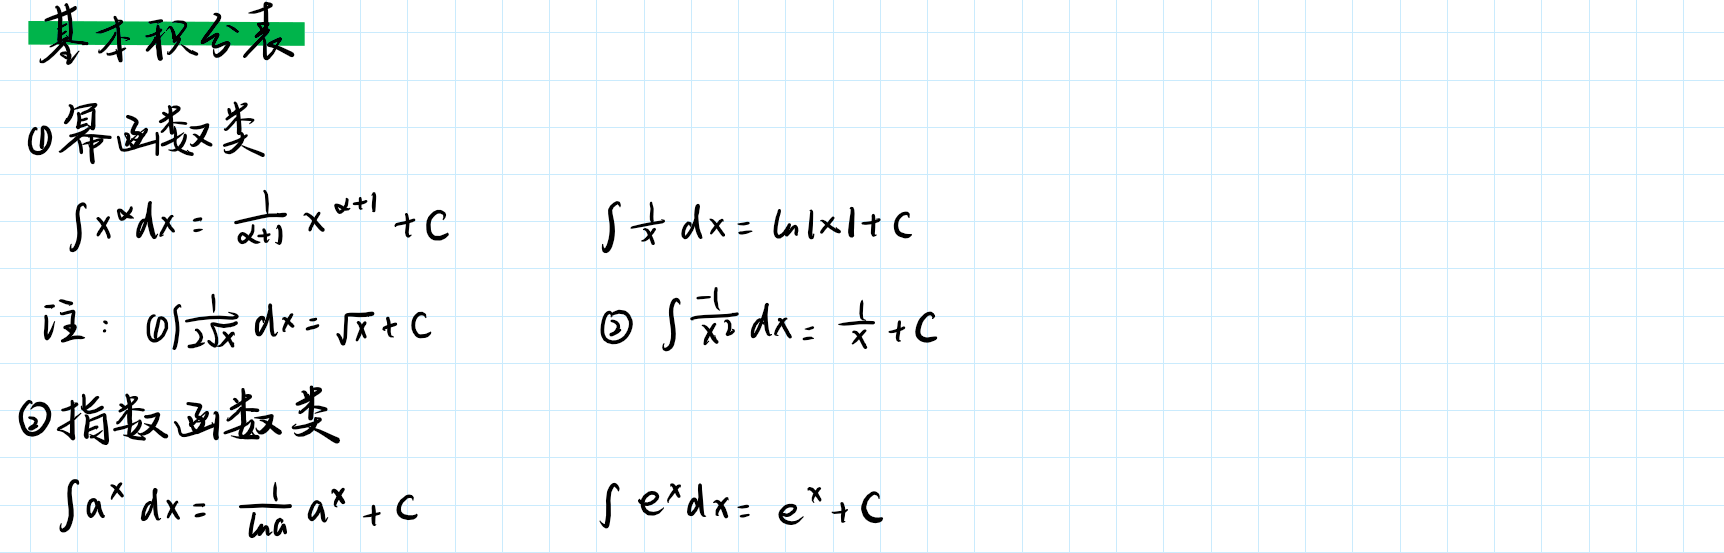 基本积分表
①幂函数类
∫x^α dx = 1/(α+1) x^(α+1) + C    ∫ 1/x dx = ln|x| + C
注: ①∫ 1/(2√x) dx = √x + C    ② ∫ -1/x² dx = 1/x + C
②指数函数类
∫a^x dx = 1/(ln a) a^x + C    ∫ e^x dx = e^x + C